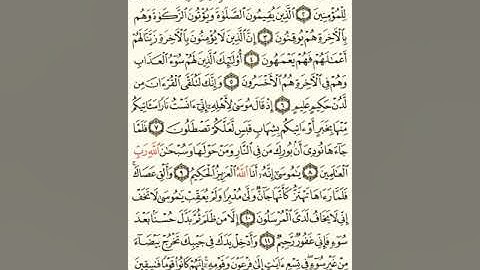 لِلْمُؤْمِنِينَ ٢ الَّذِينَ يُقِيمُونَ الصَّلَوٰةَ وَيُؤْتُونَ الزَّكَوٰةَ وَهُم
بِالْآخِرَةِ هُمْ يُوقِنُونَ ٣ إِنَّ الَّذِينَ لَا يُؤْمِنُونَ بِالْآخِرَةِ زَيَّنَّا لَهُمْ
أَعْمَٰلَهُمْ فَهُمْ يَعْمَهُونَ ٤ أُو۟لَٰٓئِكَ الَّذِينَ لَهُمْ سُوٓءُ الْعَذَابِ
وَهُمْ فِي الْآخِرَةِ هُمُ الْأَخْسَرُونَ ٥ وَإِنَّكَ لَتُلَقَّى الْقُرْءَانَ مِن
لَّدُنْ حَكِيمٍ عَلِيمٍ ٦ إِذْ قَالَ مُوسَىٰ لِأَهْلِهِۦٓ إِنِّيٓ ءَانَسْتُ نَارًا سَـَٔاتِيكُم
مِّنْهَا بِخَبَرٍ أَوْ ءَاتِيكُم بِشِهَابٍ قَبَسٍ لَّعَلَّكُمْ تَصْطَلُونَ ٧ فَلَمَّا
جَآءَهَا نُودِيَ أَنۢ بُورِكَ مَن فِي النَّارِ وَمَنْ حَوْلَهَا وَسُبْحَٰنَ اللَّهِ رَبِّ
الْعَٰلَمِينَ ٨ يَٰمُوسَىٰٓ إِنَّهُۥٓ أَنَا اللَّهُ الْعَزِيزُ الْحَكِيمُ ٩ وَأَلْقِ عَصَاكَ
فَلَمَّا رَءَاهَا تَهْتَزُّ كَأَنَّهَا جَآنٌّ وَلَّىٰ مُدْبِرًا وَلَمْ يُعَقِّبْ يَٰمُوسَىٰ لَا تَخَفْ
إِنِّي لَا يَخَافُ لَدَيَّ الْمُرْسَلُونَ ١٠ إِلَّا مَن ظَلَمَ ثُمَّ بَدَّلَ حُسْنًۢا بَعْدَ
سُوٓءٍ فَإِنِّي غَفُورٌ رَّحِيمٌ ١١ وَأَدْخِلْ يَدَكَ فِي جَيْبِكَ تَخْرُجْ بَيْضَآءَ
مِنْ غَيْرِ سُوٓءٍ فِي تِسْعِ ءَايَٰتٍ إِلَىٰ فِرْعَوْنَ وَقَوْمِهِۦٓ إِنَّهُمْ كَانُوا۟ قَوْمًا فَٰسِقِينَ